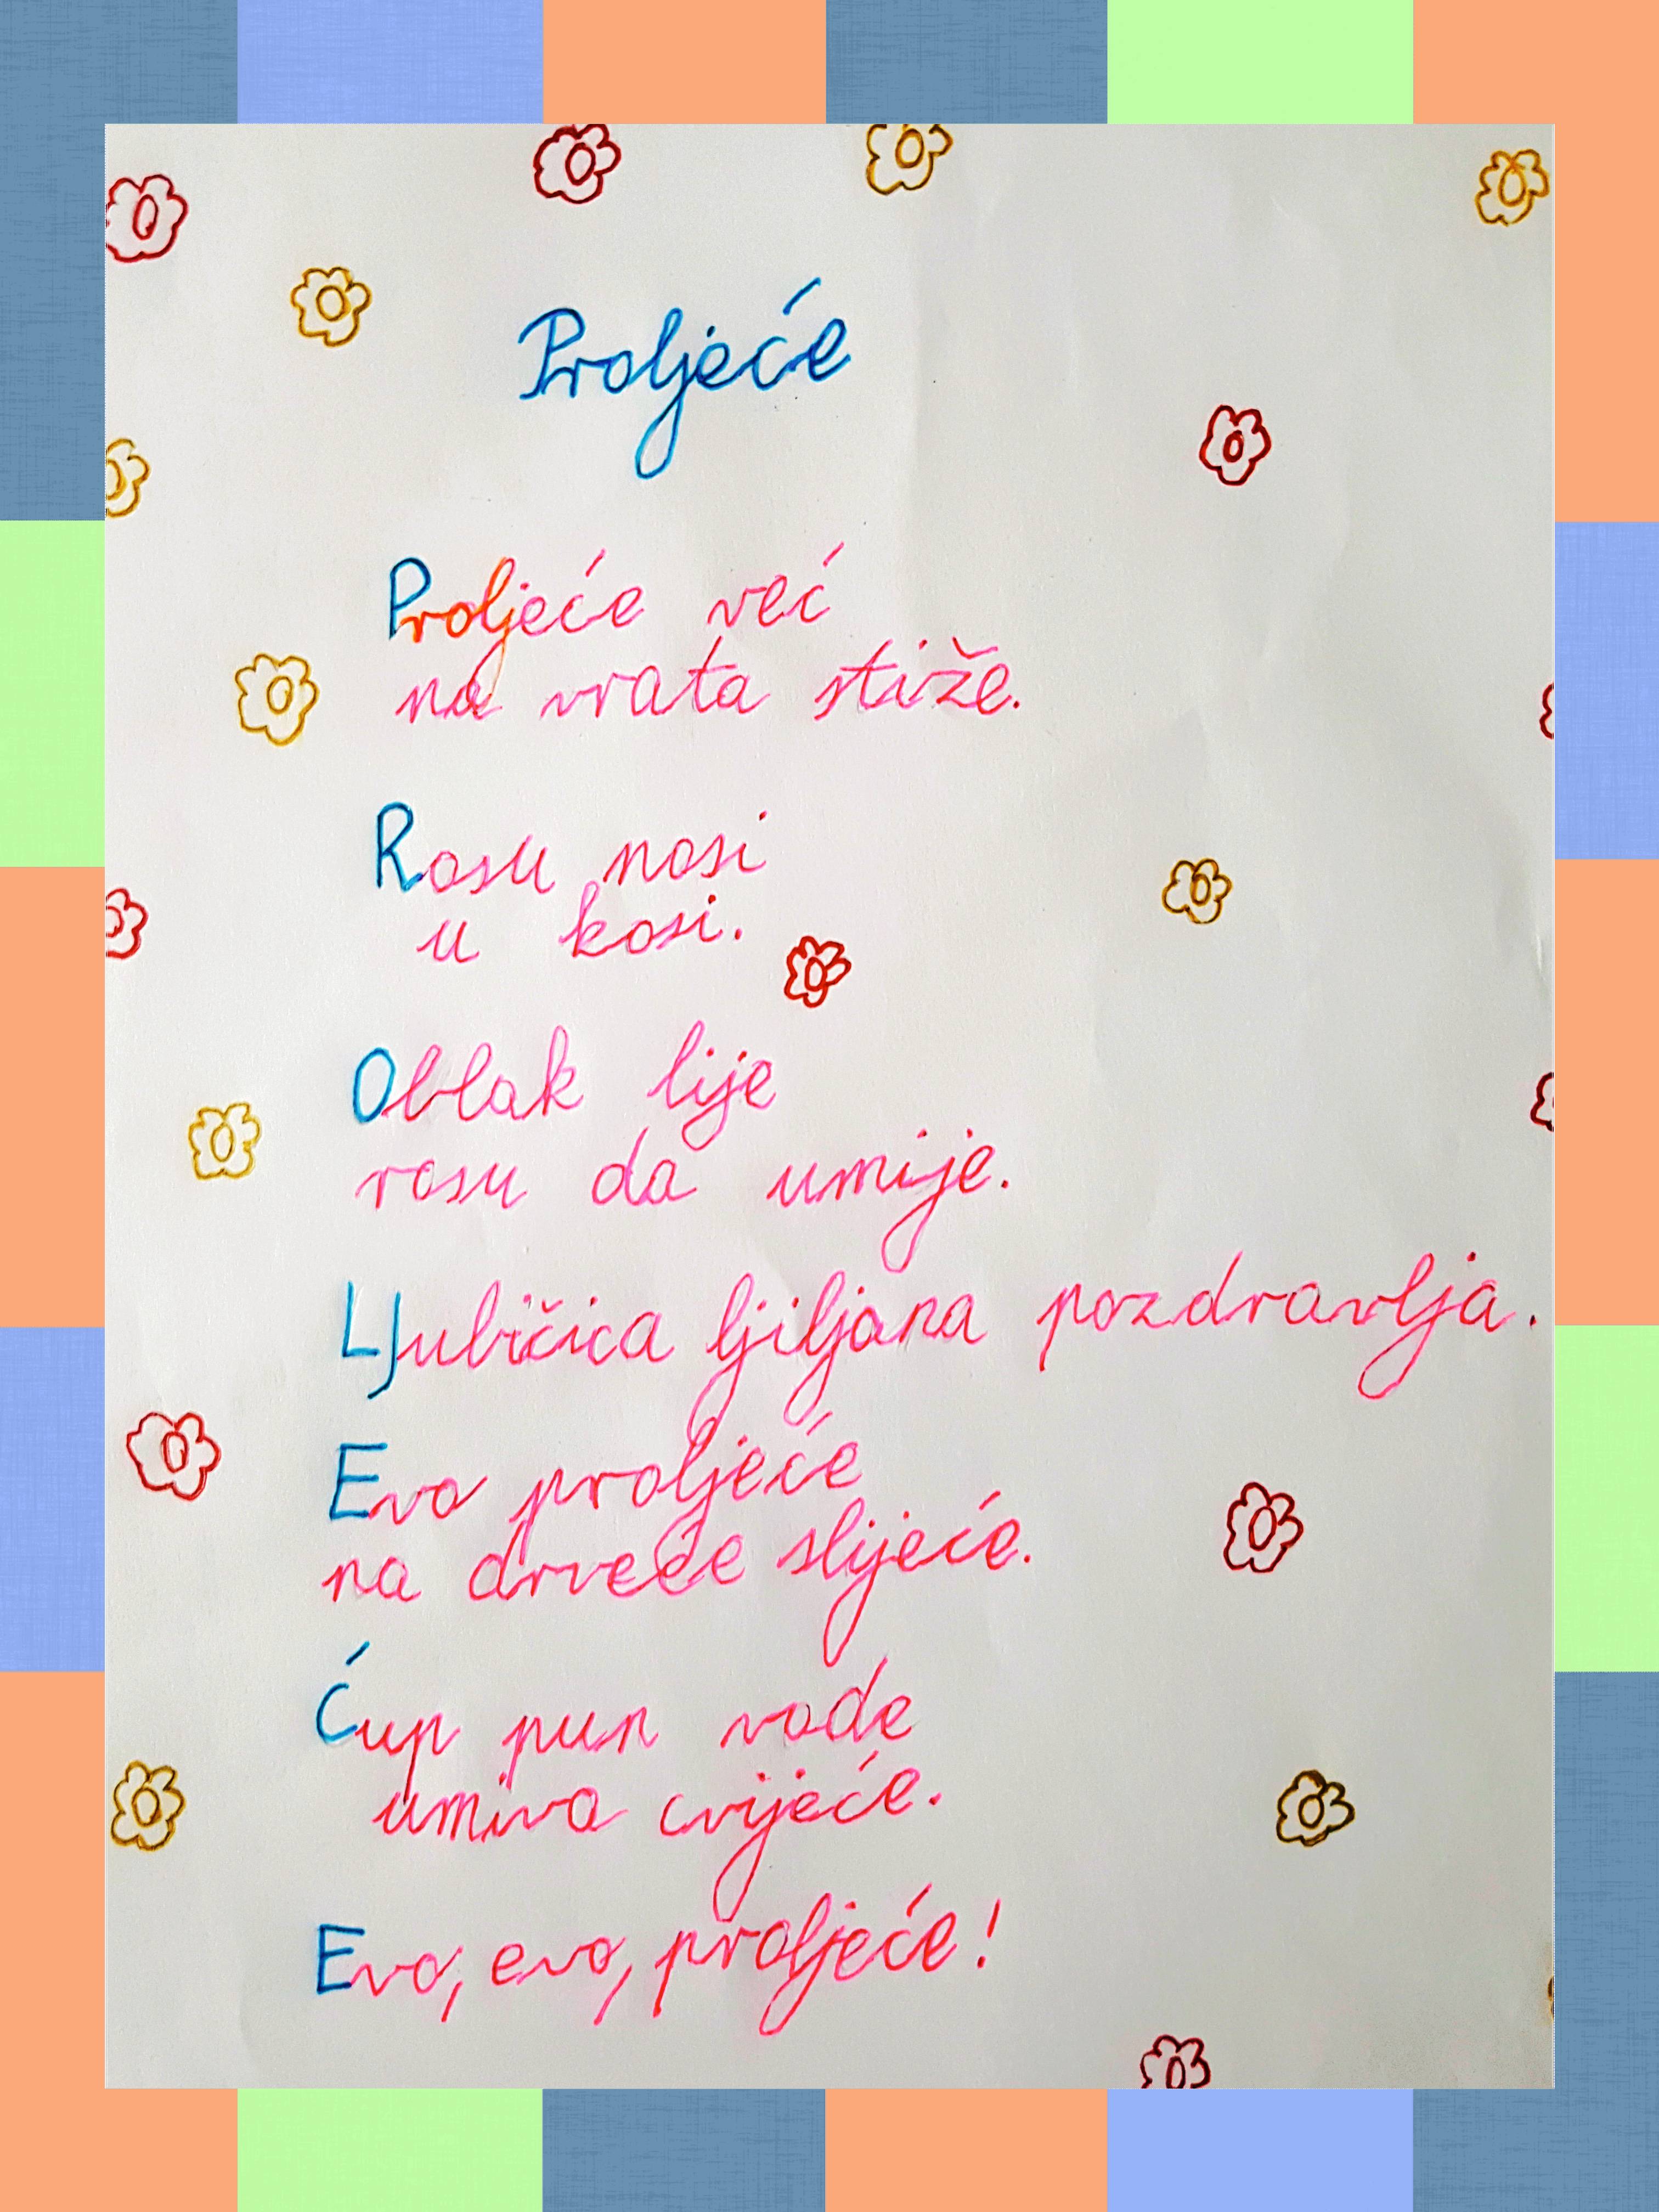 Proljeće
Proljeće već
na vrata stiže.
Rosu nosi
u kosi.
Oblak lije
rosu da umije.
LJubičica ljiljana pozdravlja.
Evo proljeće
na drveće slijeće.
Ćup pun vode
umiva cvijeće.
Evo, evo, proljeće!